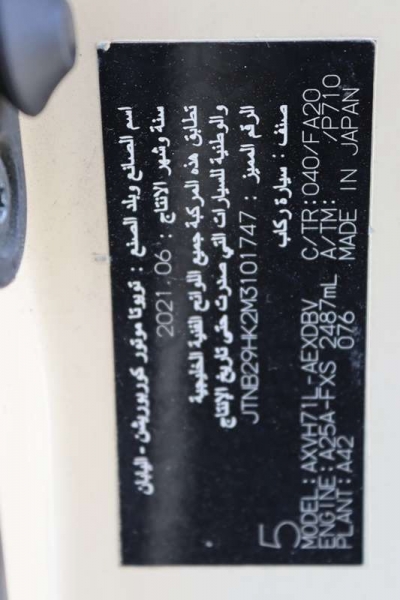 اسم الصانع وبلد الصنع : تويوتا موتور كوربوريشن - اليابان
سنة وشهر الانتاج : 2021.06
تطابق هذه المركبة جميع اللوائح الفنية الخليجية
والوطنية للسيارات التي صدرت حتى تاريخ الإنتاج
الرقم المميز : JTNB29HK2M3101747
صنف : سيارة ركاب
5
MODEL: AXVH71L-AEXDBV C/TR: 040/FA20
ENGINE: A25A-FXS 2487mL A/TM: /P710
PLANT: A42 076 MADE IN JAPAN